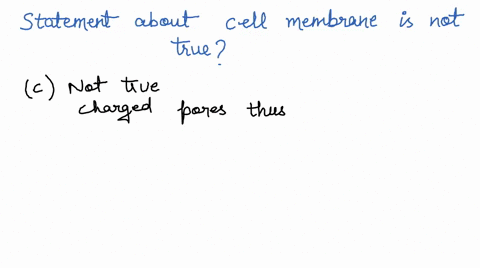 Statement about cell membrane is not
true?
(c) Not true
charged pores thus